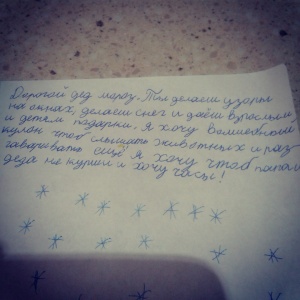 Дорогой дед мороз. Ты делаеш узоры
на окнах, делаеш снег и даёш взрослым
и детям подарки. Я хочу волшебный
кулон чтоб слышать животных и раз
гаваривать ещё я хочу чтоб папа и
деда не курили и хочу часы!